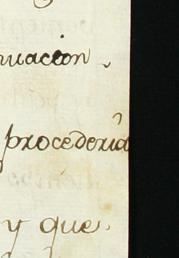 nuacion
procederia
y que